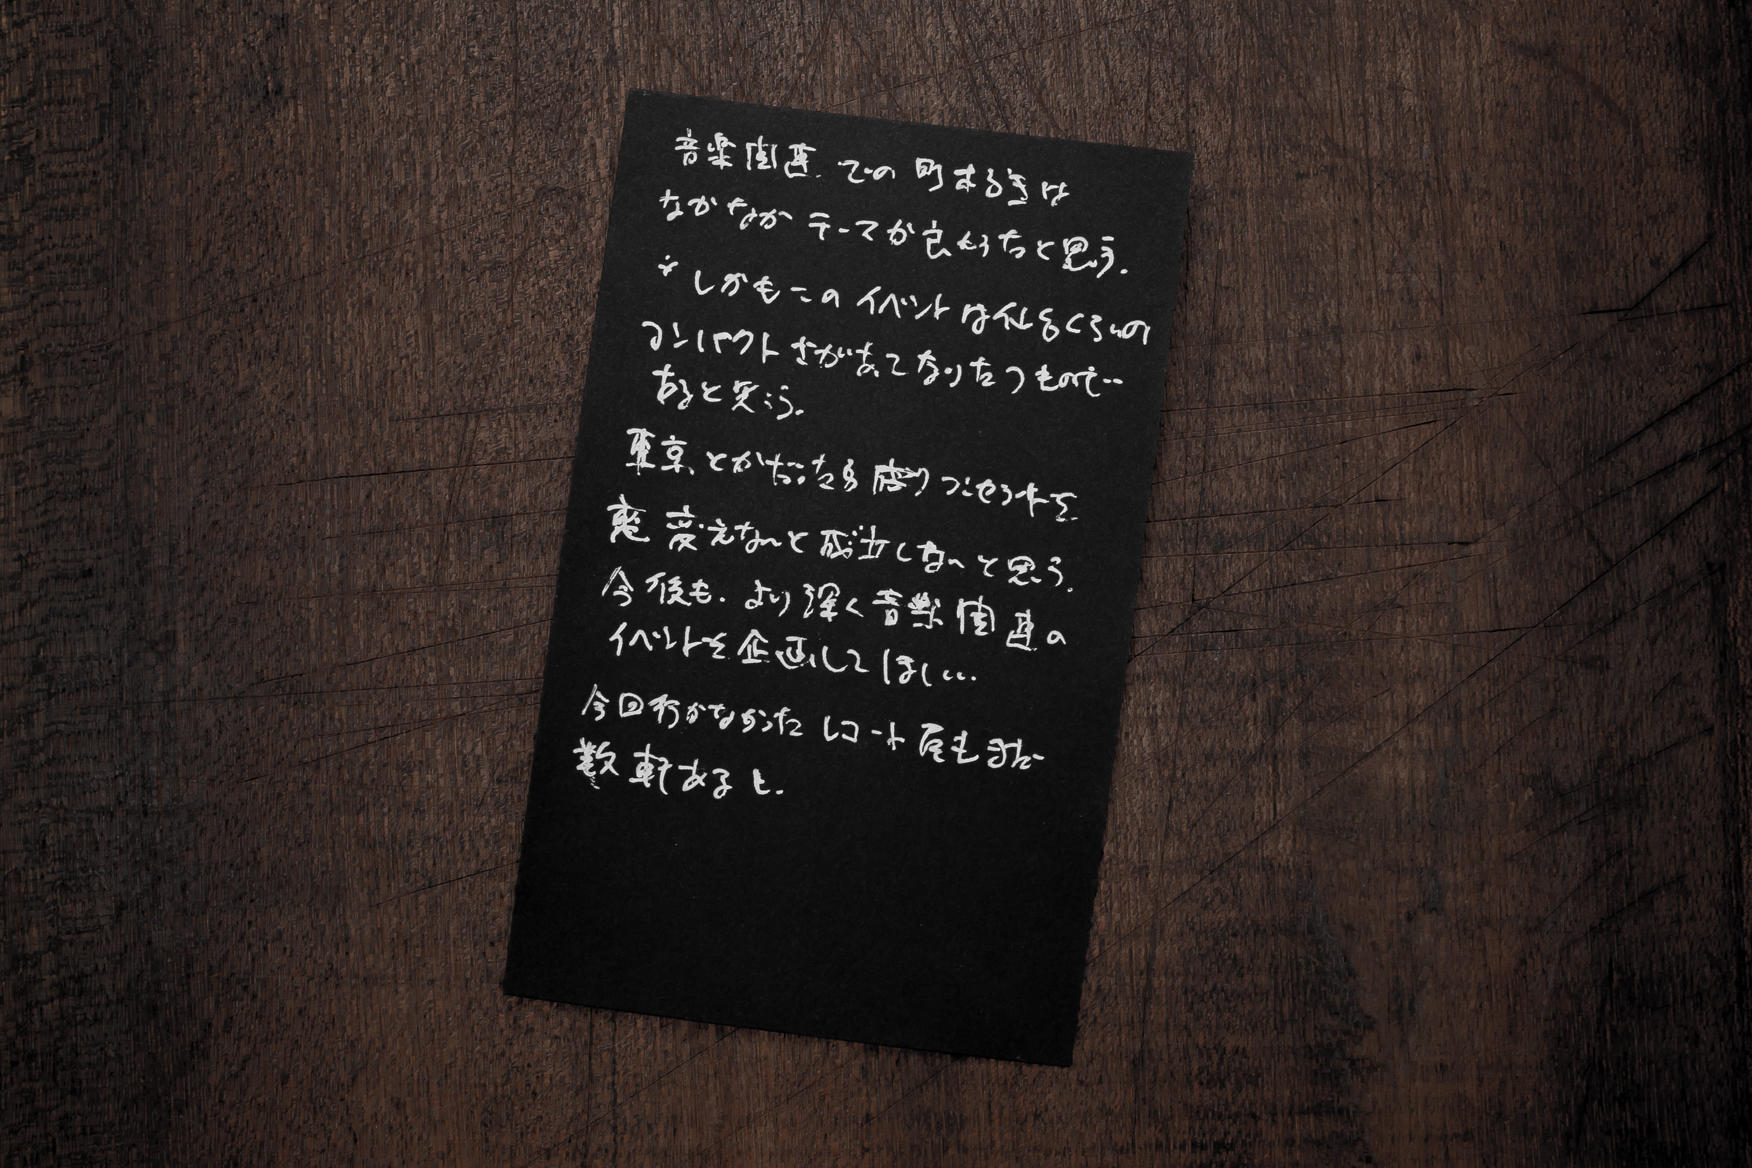 音楽関連での町まるきは
なかなかテーマが良かったと思う。
しかもこのイベントは仙台くらいの
コンパクトさがあってなりたつもので
あると思う。
東京とかだったら成りコンセプトを
変えないと成立しないと思う。
今後も、より深く音楽関連の
イベントを企画してほしい。
今回行かなかったレコード屋もまだ
数軒あると。